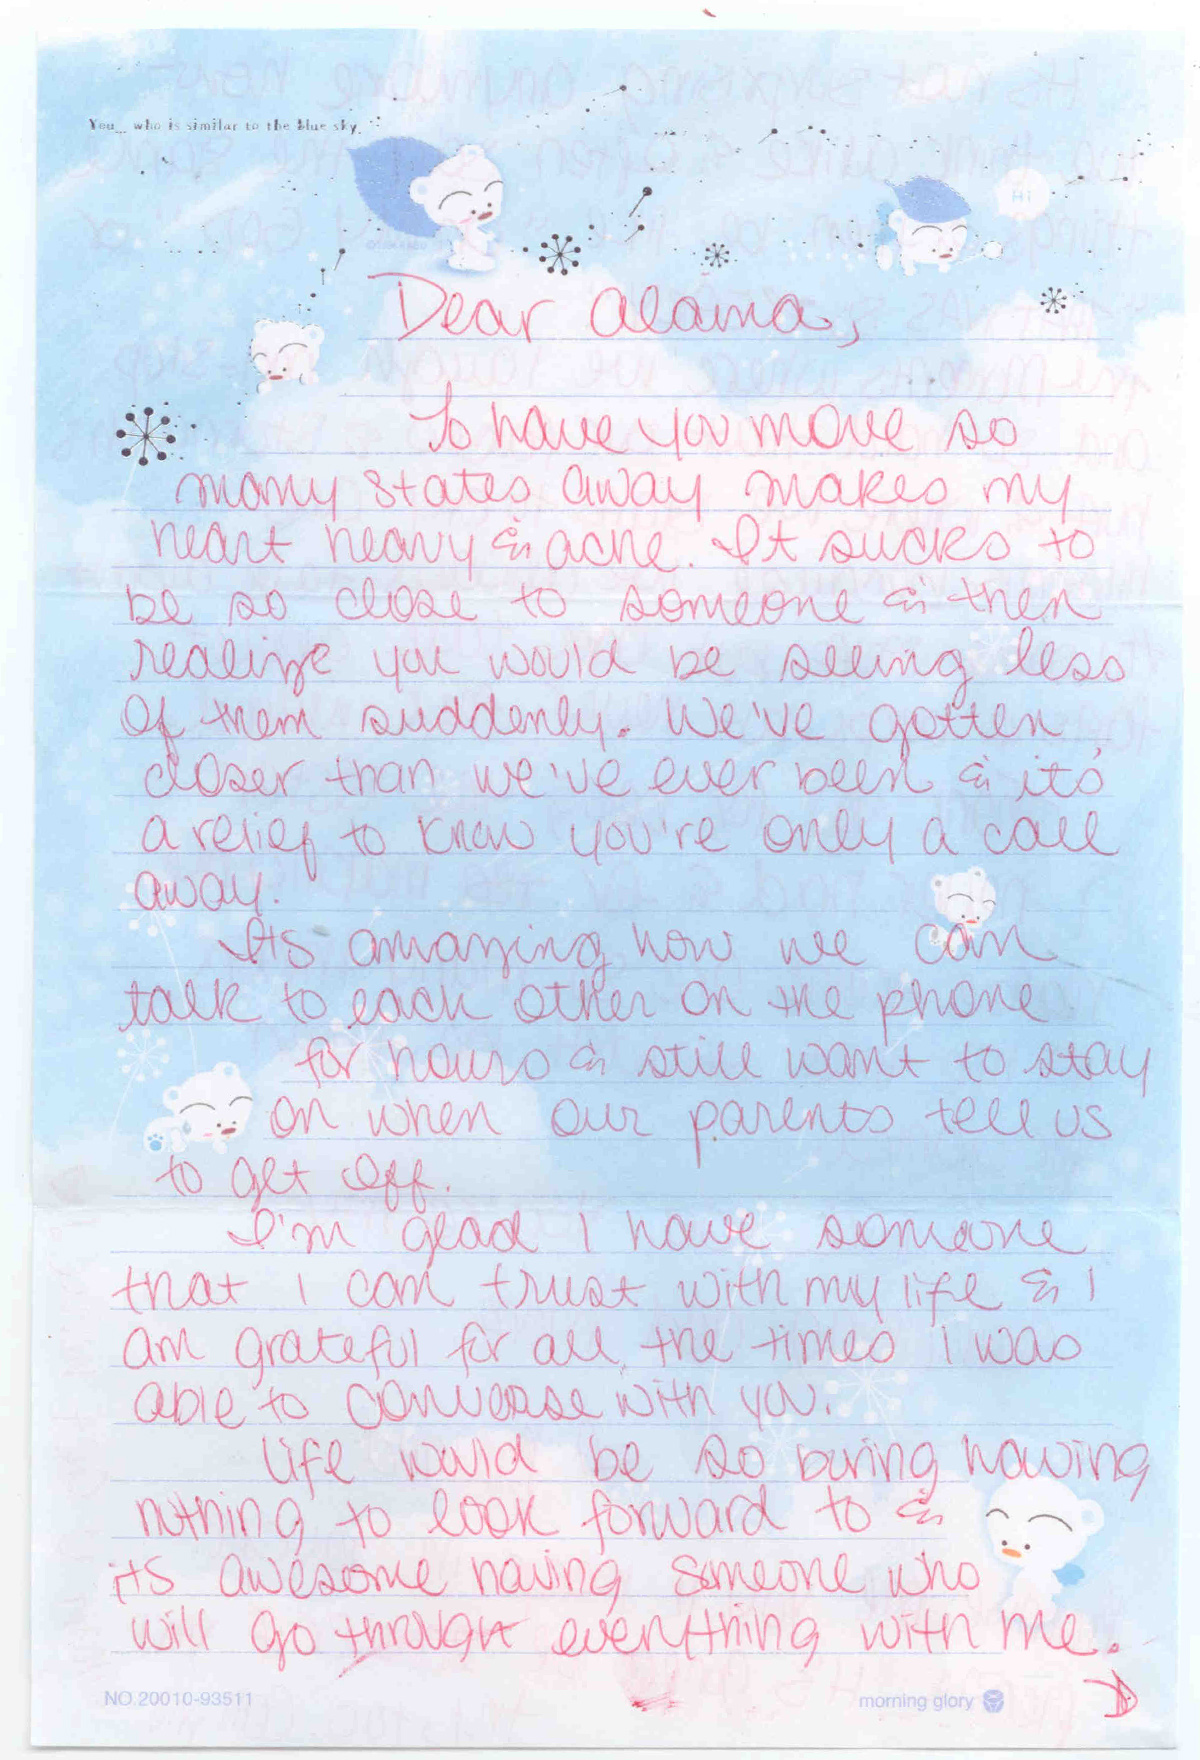 You... who is similar to the blue sky.
Hi
Dear Alaina,
To have you move so
many states away makes my
heart heavy & ache. It sucks to
be so close to someone & then
realize you would be seeing less
of them suddenly. We've gotten
closer than we've ever been & it's
a relief to know you're only a call
away.
Its amazing how we can
talk to each other on the phone
for hours & still want to stay
on when our parents tell us
to get off.
I'm glad I have someone
that I can trust with my life & I
am grateful for all the times I was
able to converse with you.
Life would be so boring having
nothing to look forward to &
its awesome having someone who
will go through everything with me.
NO.20010-93511
morning glory